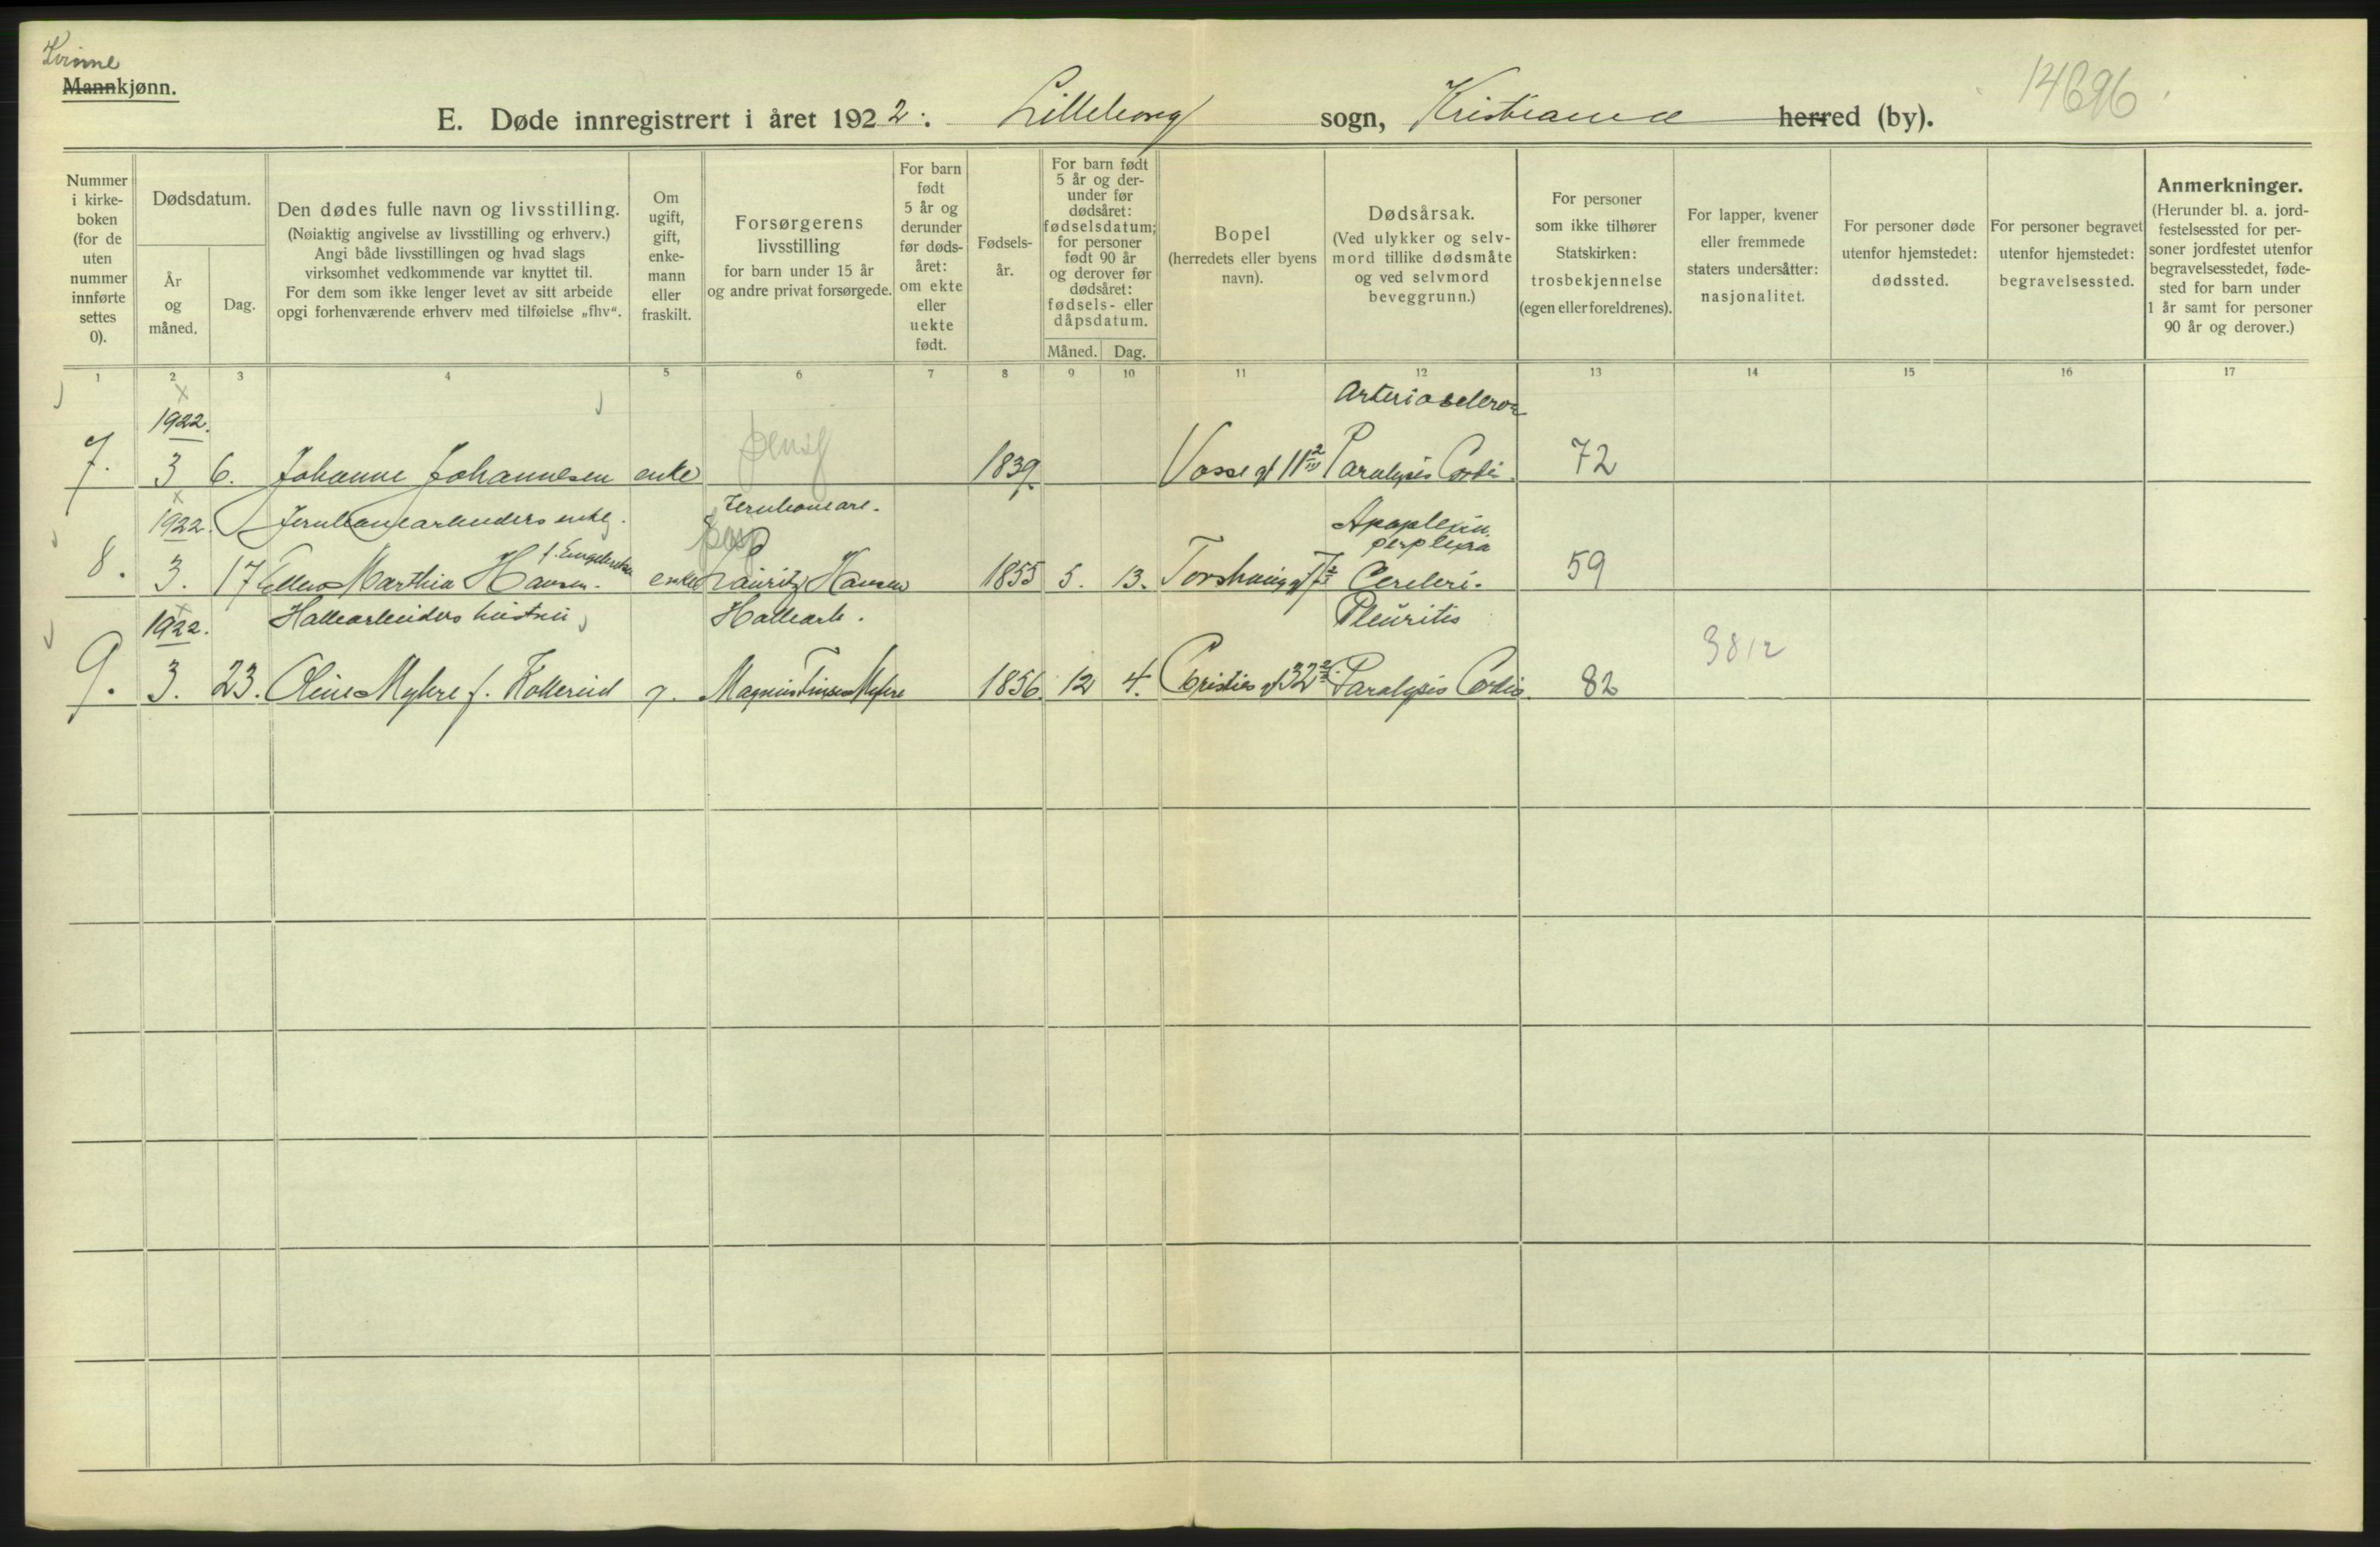 Kvinne
Mannkjønn.
14696
E. Døde innregistrert i året 1922. Lilleborg sogn, Kristiania herred (by).
Nummer i kirke-boken (for de uten nummer innførte settes 0).
Dødsdatum.
År og måned.
Dag.
Den dødes fulle navn og livsstilling.
(Nøiaktig angivelse av livsstilling og erhverv.)
Angi både livsstillingen og hvad slags
virksomhet vedkommende var knyttet til.
For dem som ikke lenger levet av sitt arbeide
opgi forhenværende erhverv med tilføielse „fhv“.
Om ugift, gift, enke-mann eller fraskilt.
Forsørgerens livsstilling
for barn under 15 år
og andre privat forsørgede.
For barn født 5 år og derunder før døds-året: om ekte eller uekte født.
Fødsels-år.
For barn født 5 år og der-under før dødsåret: fødselsdatum; for personer født 90 år og derover før dødsåret: fødsels- eller dåpsdatum.
Måned. Dag.
Bopel
(herredets eller byens navn).
Dødsårsak.
(Ved ulykker og selv-mord tillike dødsmåte og ved selvmord beveggrunn.)
For personer som ikke tilhører Statskirken: trosbekjennelse (egen eller foreldrenes).
For lapper, kvener eller fremmede staters undersåtter: nasjonalitet.
For personer døde utenfor hjemstedet: dødssted.
For personer begravet utenfor hjemstedet: begravelsessted.
Anmerkninger.
(Herunder bl. a. jord-festelsessted for per-soner jordfestet utenfor begravelsesstedet, føde-sted for barn under 1 år samt for personer 90 år og derover.)
1 2 3 4 5 6 7 8 9 10 11 12 13 14 15 16 17
x
1922. Arterioscleros
7. 3 6. Johanne Johannesen enke 1839. Vosse gt 11 Paralysis Cordis. 72
x
1922. enke. Apoplexia
perplexa
8. 3. 17 Ellen Marthia Hansen. f. Engebretsen enke Lauritz Hansen 1855 5. 13. Torshaug gt 7 Cerebri. 59
x
1922. Hallearbeiders hustru Hallearb. Pleuritis
3812
9. 3. 23. Oline Myhre f. Kollerud g. Magnus Myhre 1856 12 4. Cristies gt 32 Paralysis Cordis. 82